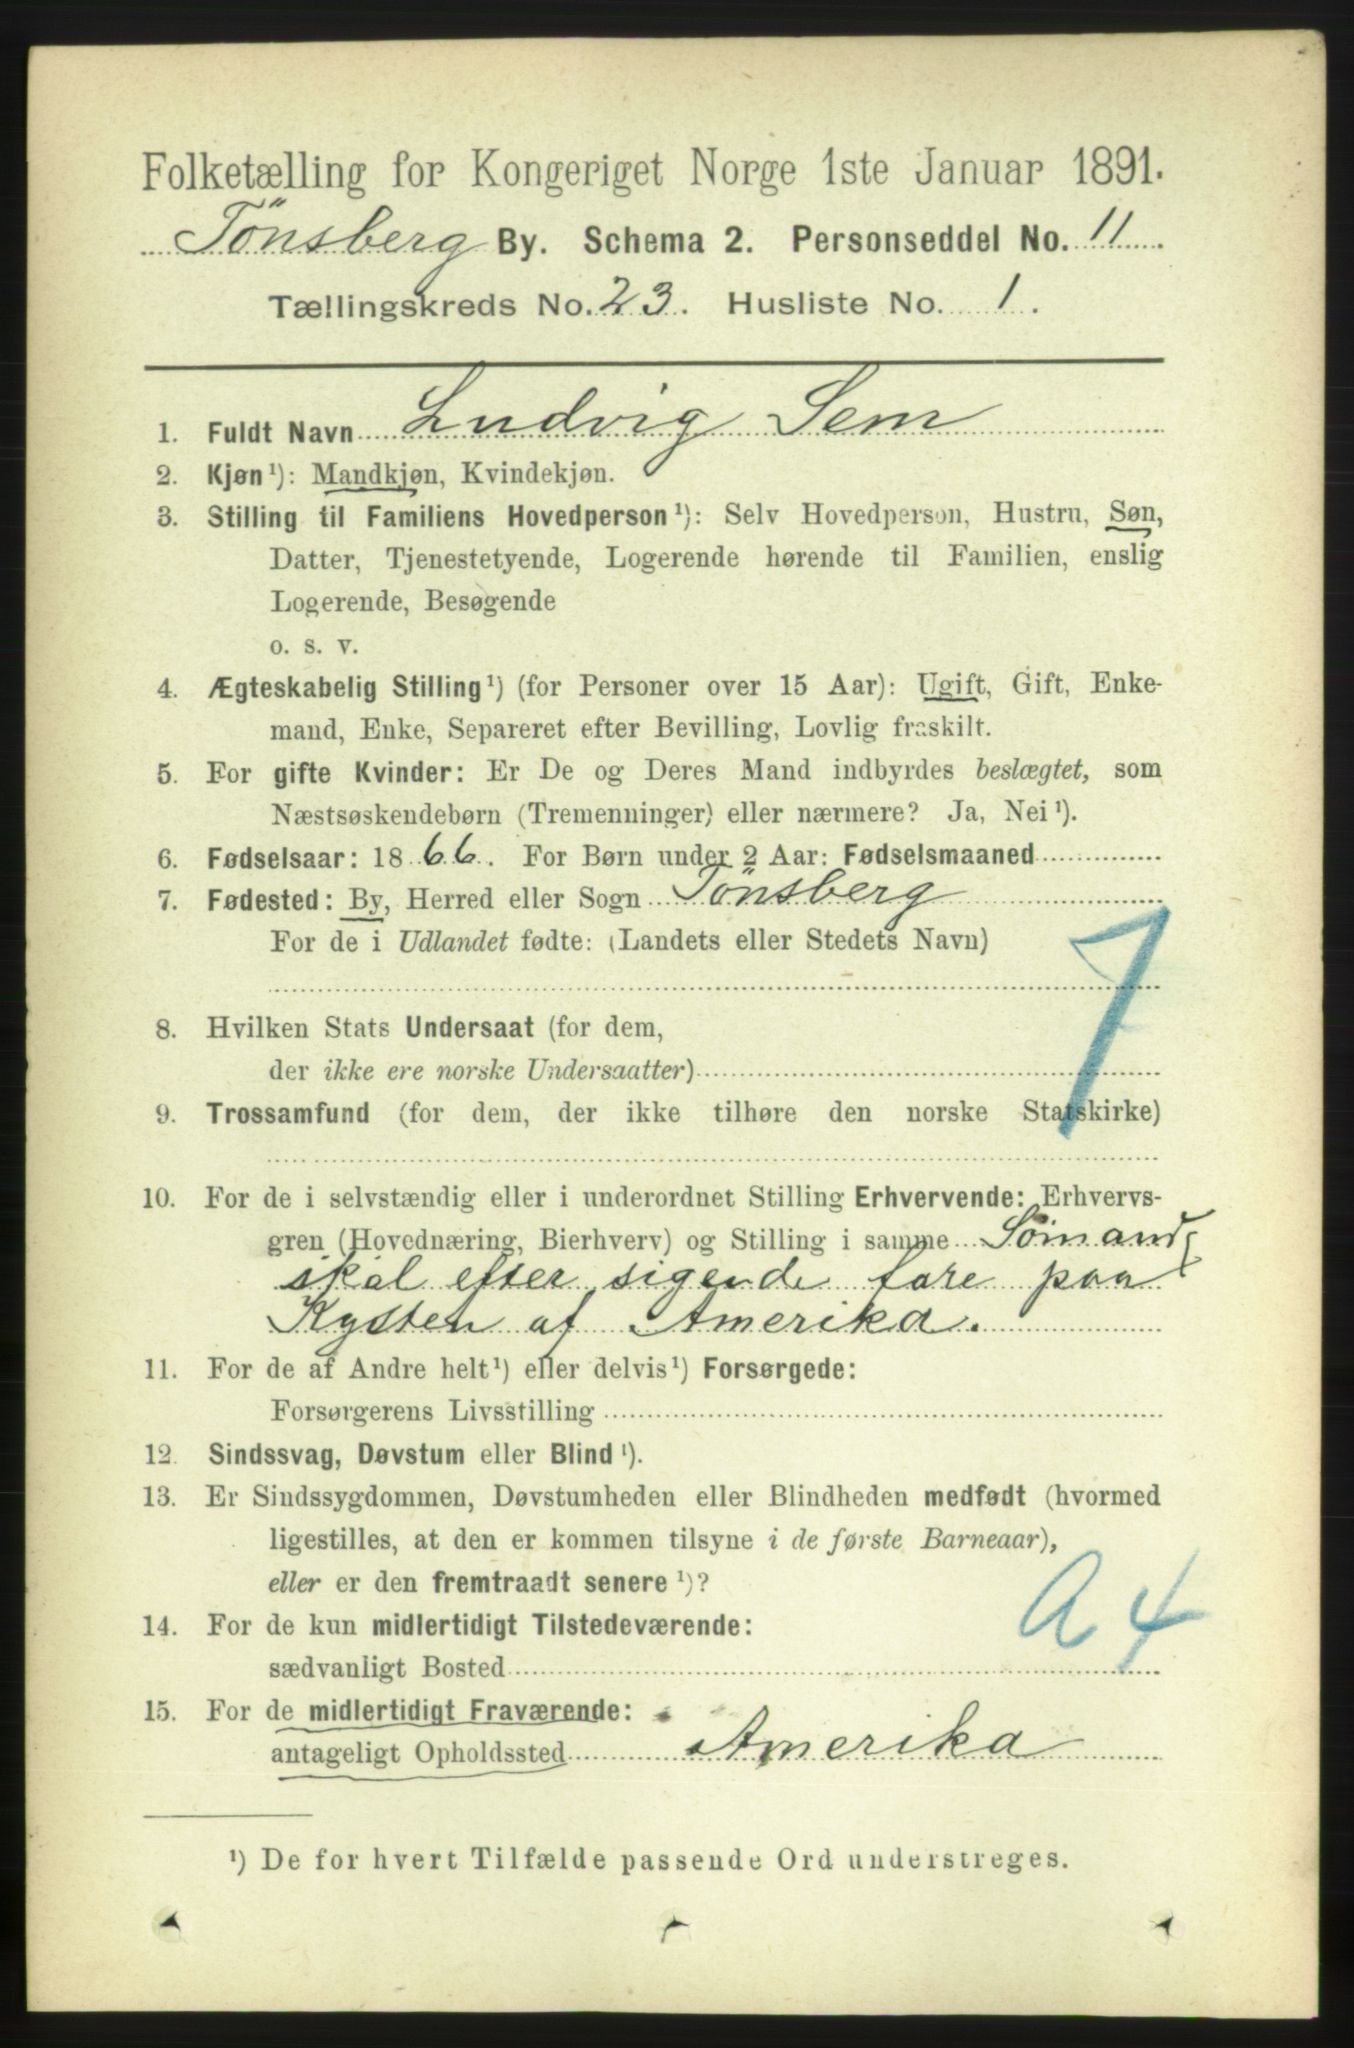 Folketælling for Kongeriget Norge 1ste Januar 1891.
Tönsberg By. Schema 2. Personseddel No. 11.
Tællingskreds No. 23. Husliste No. 1.
1. Fuldt Navn Ludvig Sem
2. Kjøn¹): Mandkjøn, Kvindekjøn.
3. Stilling til Familiens Hovedperson¹): Selv Hovedperson, Hustru, Søn,
Datter, Tjenestetyende, Logerende hørende til Familien, enslig
Logerende, Besøgende
o. s. v.
4. Ægteskabelig Stilling¹) (for Personer over 15 Aar): Ugift, Gift, Enke-
mand, Enke, Separeret efter Bevilling, Lovlig fraskilt.
5. For gifte Kvinder: Er De og Deres Mand indbyrdes beslægtet, som
Næstsøskendebørn (Tremenninger) eller nærmere? Ja, Nei¹).
6. Fødselsaar: 1866. For Børn under 2 Aar: Fødselsmaaned
7. Fødested: By, Herred eller Sogn Tönsberg
For de i Udlandet fødte: (Landets eller Stedets Navn)
7
8. Hvilken Stats Undersaat (for dem,
der ikke ere norske Undersaatter)
9. Trossamfund (for dem, der ikke tilhøre den norske Statskirke)
10. For de i selvstændig eller i underordnet Stilling Erhvervende: Erhvervs-
gren (Hovednæring, Bierhverv) og Stilling i samme Sömand
skal efter sigende fare paa
Kysten af Amerika.
11. For de af Andre helt¹) eller delvis¹) Forsørgede:
Forsørgerens Livsstilling
12. Sindssvag, Døvstum eller Blind¹).
13. Er Sindssygdommen, Døvstumheden eller Blindheden medfødt (hvormed
ligestilles, at den er kommen tilsyne i de første Barneaar),
eller er den fremtraadt senere¹)?
A 4
14. For de kun midlertidigt Tilstedeværende:
sædvanligt Bosted
15. For de midlertidigt Fraværende:
antageligt Opholdssted Amerika
¹) De for hvert Tilfælde passende Ord understreges.